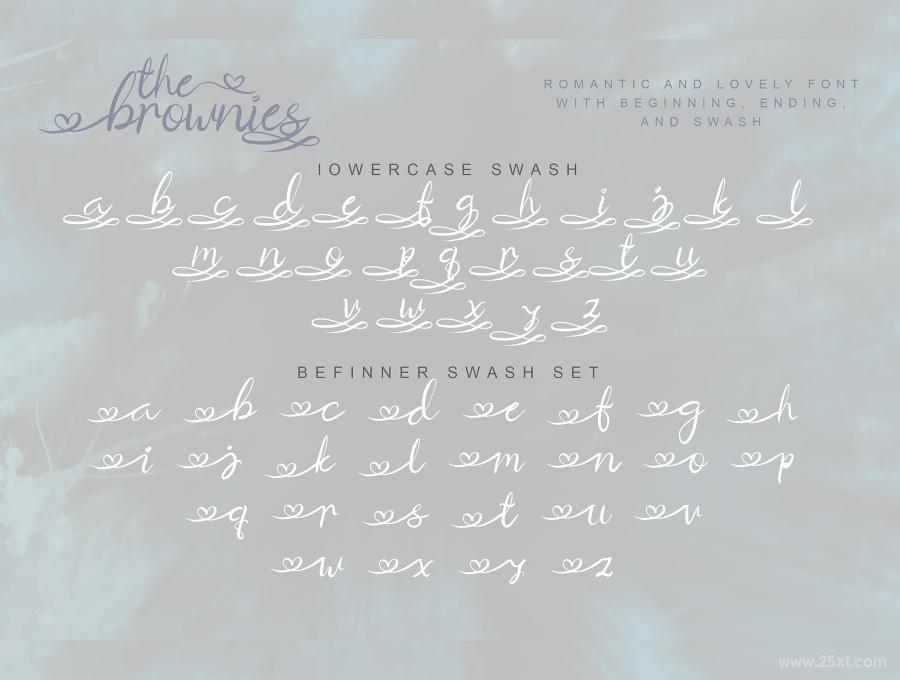 the
brownies
ROMANTIC AND LOVELY FONT
WITH BEGINNING, ENDING,
AND SWASH
lOWERCASE SWASH
a b c d e f g h i j k l
m n o p q r s t u
v w x y z
BEFINNER SWASH SET
a b c d e f g h
i j k l m n o p
q r s t u v
w x y z
www.25xt.com